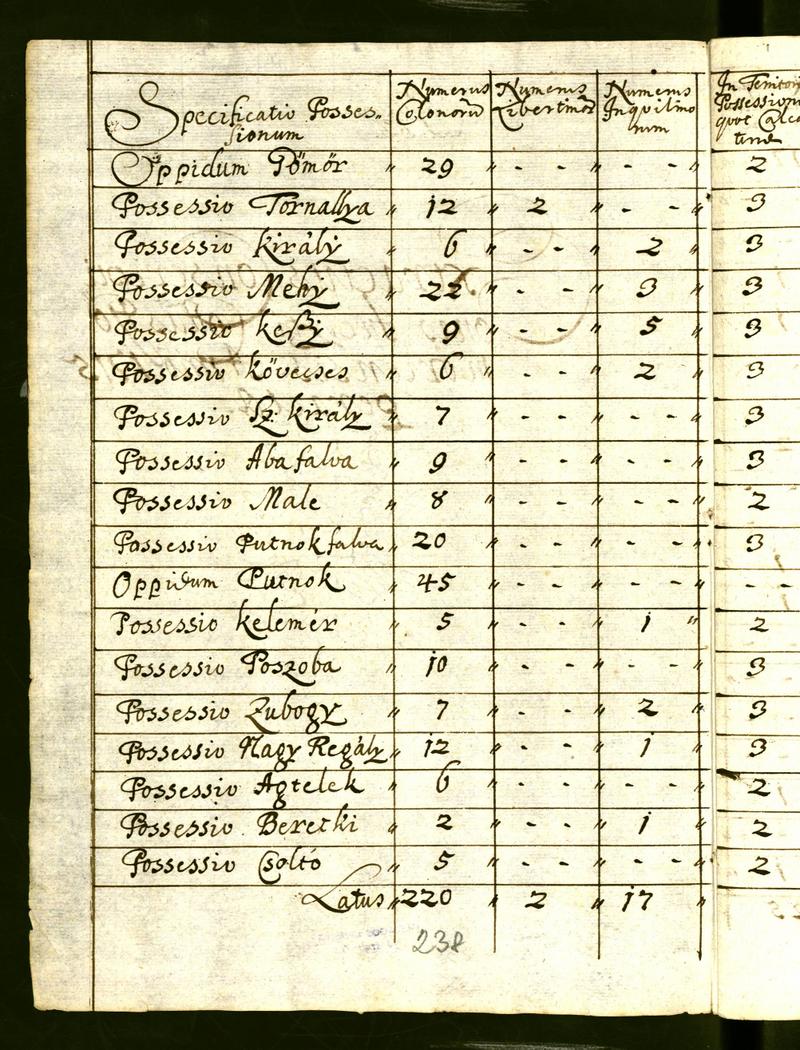 Specificatio Posses=
sionum
Numerus
Colonorū
Numerus
Libertinorū
Numerus
Inquilino
rum
In Territori
Possessionu
quot Calca
turæ
Oppidum Gömör „ 29 „ - - „ - - „ 2
Possessio Tornallya „ 12 „ 2 „ - - „ 3
Possessio király „ 6 „ - - „ 2 „ 3
Possessio Mehÿ „ 22 „ - - „ 3 „ 3
Possessio keßÿ „ 9 „ - - „ 5 „ 3
Possessio kövecses „ 6 „ - - „ 2 „ 3
Possessio Sz: király „ 7 „ - - „ - - „ 3
Possessio Abafalva „ 9 „ - - „ - - „ 3
Possessio Male „ 8 „ - - „ - - „ 2
Possessio Putnokfalva „ 20 „ - - „ - - „ 3
Oppidum Putnok „ 45 „ - - „ - - „ - -
Possessio kelemér „ 5 „ - - „ 1 „ 2
Possessio Poszoba „ 10 „ - - „ - - „ 3
Possessio Zubogy „ 7 „ - - „ 2 „ 3
Possessio Nagy Regály „ 12 „ - - „ 1 „ 3
Possessio Agtelek „ 6 „ - - „ - - „ 2
Possessio Beretki „ 2 „ - - „ 1 „ 2
Possessio Csoltó „ 5 „ - - „ - - „ 2
Latus „ 220 „ 2 „ 17 „
238